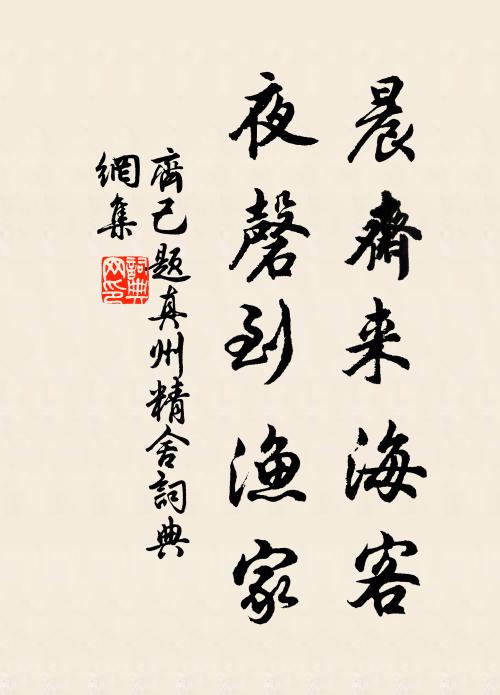 晨齋来海客
夜磬到漁家
齊己題真州精舍詞典
網集
詞典
网印